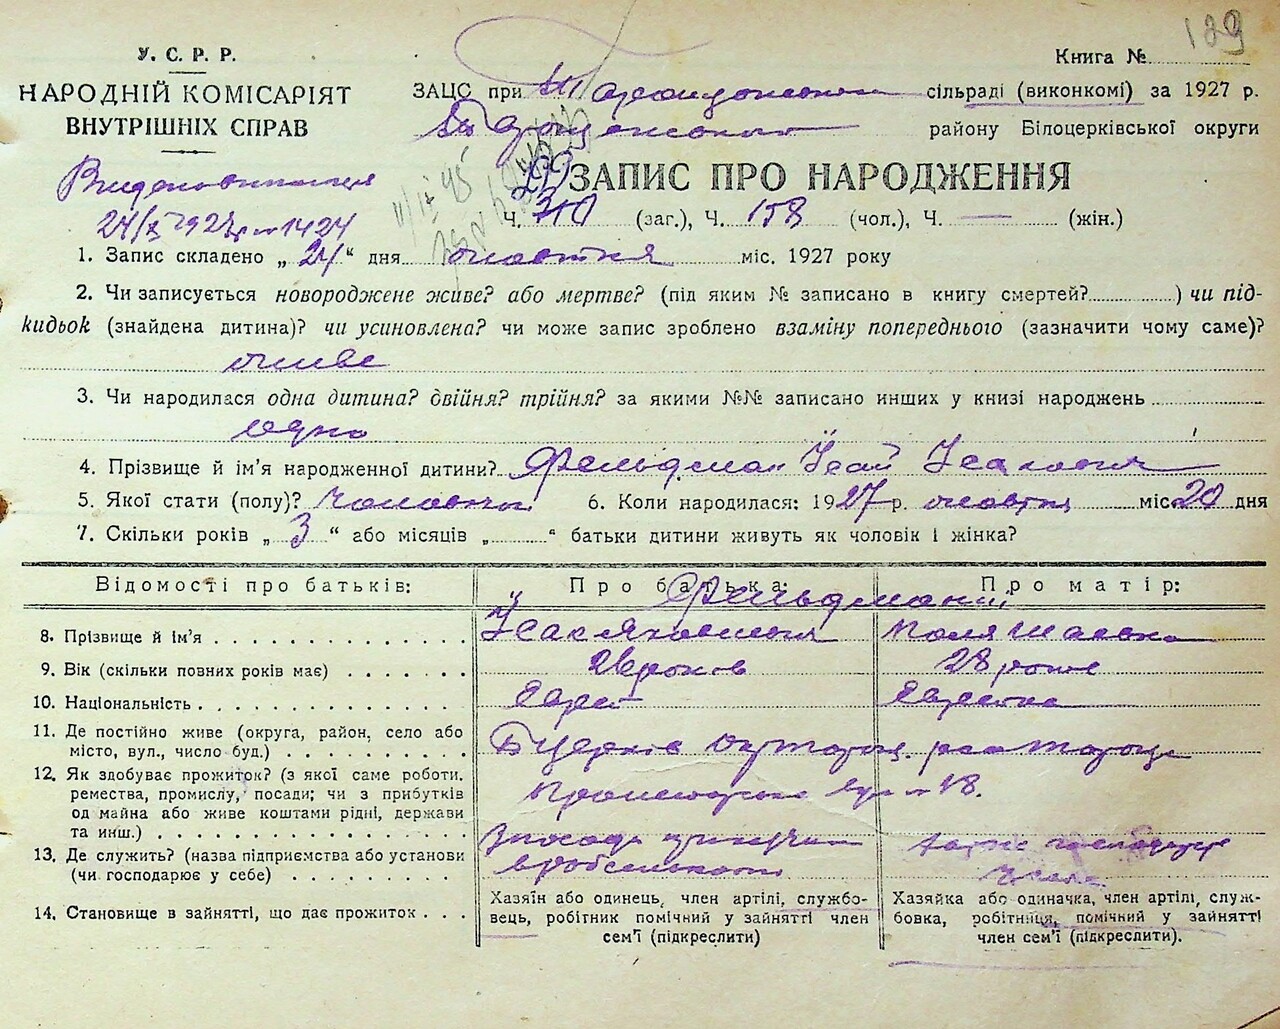 189
У. С. Р. Р.
Книга №
НАРОДНІЙ КОМІСАРІЯТ
ВНУТРІШНІХ СПРАВ
ЗАЦС при сільраді (виконкомі) за 1927 р.
району Білоцерківської округи
ЗАПИС ПРО НАРОДЖЕННЯ
Ч. 310 (заг.), Ч. 158 (чол.), Ч. — (жін.)
1. Запис складено „ 24 “ дня жовтня міс. 1927 року
2. Чи записується новороджене живе? або мертве? (під яким № записано в книгу смертей? ) чи під-
кидьок (знайдена дитина)? чи усиновлена? чи може запис зроблено взаміну попереднього (зазначити чому саме)?
живе
3. Чи народилася одна дитина? двійня? трійня? за якими №№ записано инших у книзі народжень
одно
4. Прізвище й ім'я народженної дитини? Фельдман Ісай Ісакович
5. Якої стати (полу)? чоловічої 6. Коли народилася: 1927 р. жовтня міс. 20 дня
7. Скільки років „ 3 “ або місяців „ “ батьки дитини живуть як чоловік і жінка?
Відомості про батьків: Про батька: Про матір:
Фельдмани
8. Прізвище й ім'я Ісак Яковлевич Поля
9. Вік (скільки повних років має) 28 років 28 років
10. Національність Єврей Єврейка
11. Де постійно живе (округа, район, село або
місто, вул., число буд.)
12. Як здобуває прожиток? (з якої саме роботи,
ремества, промислу, посади; чи з прибутків
од майна або живе коштами рідні, держави
та инш.)
вул № 18.
13. Де служить? (назва підприємства або установи
(чи господарює у себе)
14. Становище в зайнятті, що дає прожиток
Хазяїн або одинець, член артілі, службо-
вець, робітник помічний у зайнятті член
сем'ї (підкреслити)
Хазяйка або одиначка, член артілі, служ-
бовка, робітниця, помічний у зайнятті
член сем'ї (підкреслити).